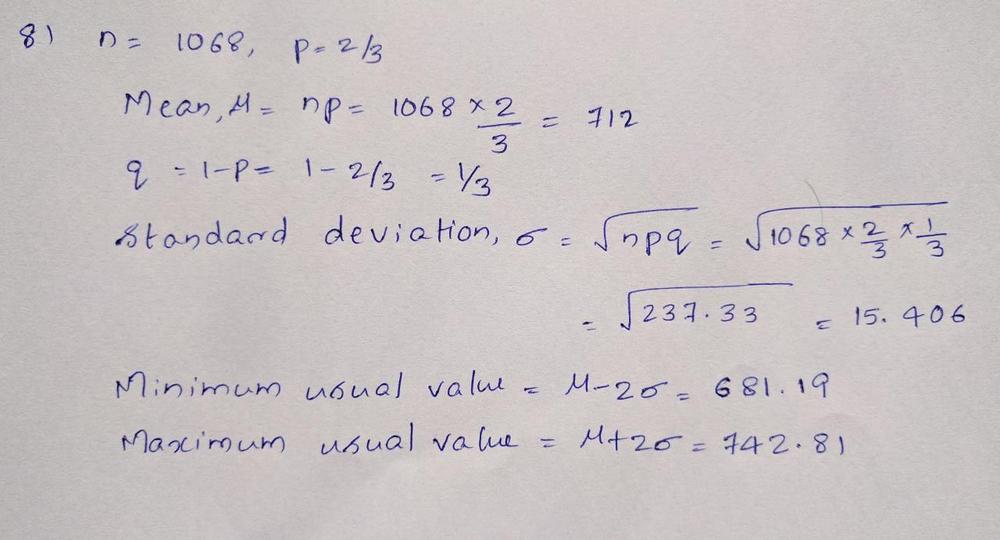 8) n = 1068, p = 2/3
Mean, μ = np = 1068 × 2/3 = 712
q = 1-p = 1 - 2/3 = 1/3
Standard deviation, σ = √npq = √1068 × 2/3 × 1/3
= √237.33 = 15.406
Minimum usual value = μ-2σ = 681.19
Maximum usual value = μ+2σ = 742.81